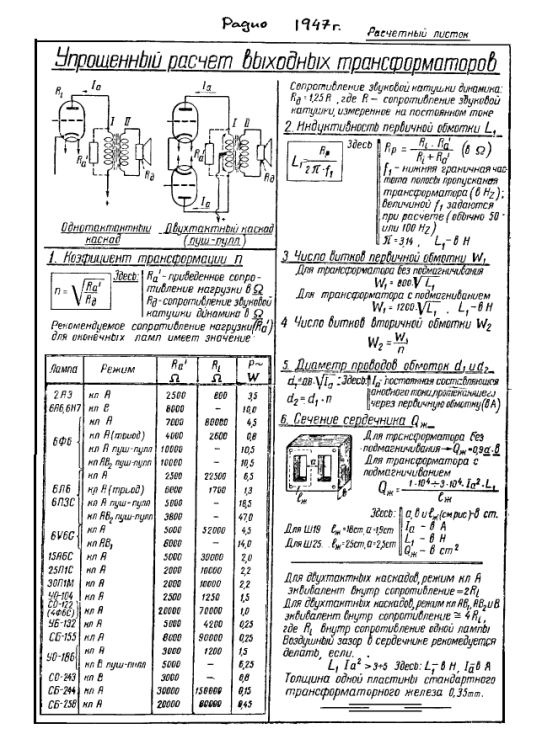 Радио 1947г.
Расчетный листок
Упрощенный расчет выходных трансформаторов
Ri Ia Ia
I II I II
Ra' Rд Ra' Rд
Ia
Однотактактный каскад
Двухтактный каскад (пуш-пулл)
1. Коэфициент трансформации n
n = √(Ra'/Rд)
Здесь: Ra' - приведенное сопро-
тивление нагрузки в Ω
Rд - сопротивление звуковой
катушки динамика в Ω
Рекомендуемое сопротивление нагрузки (Ra')
для оконечных ламп имеет значение:
Лампа Режим Ra' Ω Ri Ω P~ W
2А3 кл А 2500 800 3,5
6А6,6Н7 кл В 8000 — 10,0
6Ф6 кл А 7000 80000 4,5
кл А (триод) 4000 2600 0,8
кл А пуш-пулл 10000 — 10,5
кл АВ₂ пуш-пулл 10000 — 10,5
6Л6 6П3С кл А 2500 22500 6,5
кл А (триод) 6000 1700 1,3
кл А пуш-пулл 5000 — 18,5
кл АВ₂ пуш-пулл 3800 — 47,0
6V6С кл А 5000 52000 4,5
кл АВ₁ 8000 — 14,0
15А6С кл А 5000 30000 2,0
25П1С кл А 2000 10000 2,2
30П1М кл А 2000 10000 2,2
УО-104 кл А 2500 1250 1,5
СО-122 (4Ф6С) кл А 20000 70000 1,0
УБ-132 кл А 5000 4200 0,25
СБ-155 кл А 8000 90000 0,25
УО-186 кл А 3000 1200 1,5
кл В пуш-пулл 5000 — 6,25
СО-243 кл В 3000 — 0,8
СБ-244 кл А 30000 150000 0,15
СБ-258 кл А 20000 80000 0,45
Сопротивление звуковой катушки динамика:
Rд = 1,25 R, где R - сопротивление звуковой
катушки, измеренное на постоянном токе
2. Индуктивность первичной обмотки L₁
L₁ = Rр / 2π·f₁
Здесь Rр = Ri · Ra' / Ri + Ra' (в Ω)
f₁ - нижняя граничная час-
тота полосы пропускания
трансформатора (в Hz);
величиной f₁ задаются
при расчете (обычно 50
или 100 Hz)
π = 3,14, L₁ - в H
3 Число витков первичной обмотки W₁
Для трансформатора без подмагничивания
W₁ = 800·√L₁
Для трансформатора с подмагничиванием
W₁ = 1200·√L₁ . L₁ - в H
4 Число витков вторичной обмотки W₂
W₂ = W₁/n
5. Диаметр проводов обмоток d₁ и d₂
d₁ = 0,8·√Ia Здесь: Ia - постоянная составляющая
анодного тока, протекающего
через первичную обмотку (в А)
d₂ = d₁ · n
6. Сечение сердечника Qж
Для трнсформатора без
подмагничивания → Qж = 0,9 а·в
Для трансформатора с
подмагничиванием
Qж = 1·10⁴ ÷ 3·10⁴ · Ia²·L₁ / ℓж
ℓж в а
Здесь: а, в и ℓж (см рис) - в см.
Ia - в А
L₁ - в H
Qж - в см²
Для Ш19 ℓж = 18см, а = 1,9см
Для Ш25. ℓж = 25см, а = 2,5см
Для двухтактных каскадов, режим кл А
эквивалент внутр сопротивление = 2Ri
Для двухтактных каскадов, режим кл АВ₁, АВ₂ и В
эквивалент внутр сопротивление ≅ 4Ri,
где Ri внутр сопротивление одной лампы
Воздушный зазор в сердечнике рекомендуется
делать, если. .
L₁ Ia² > 3÷5 Здесь: L₁ - в H, Ia в А
Толщина одной пластины стандартного
трансформаторного железа 0,35mm.